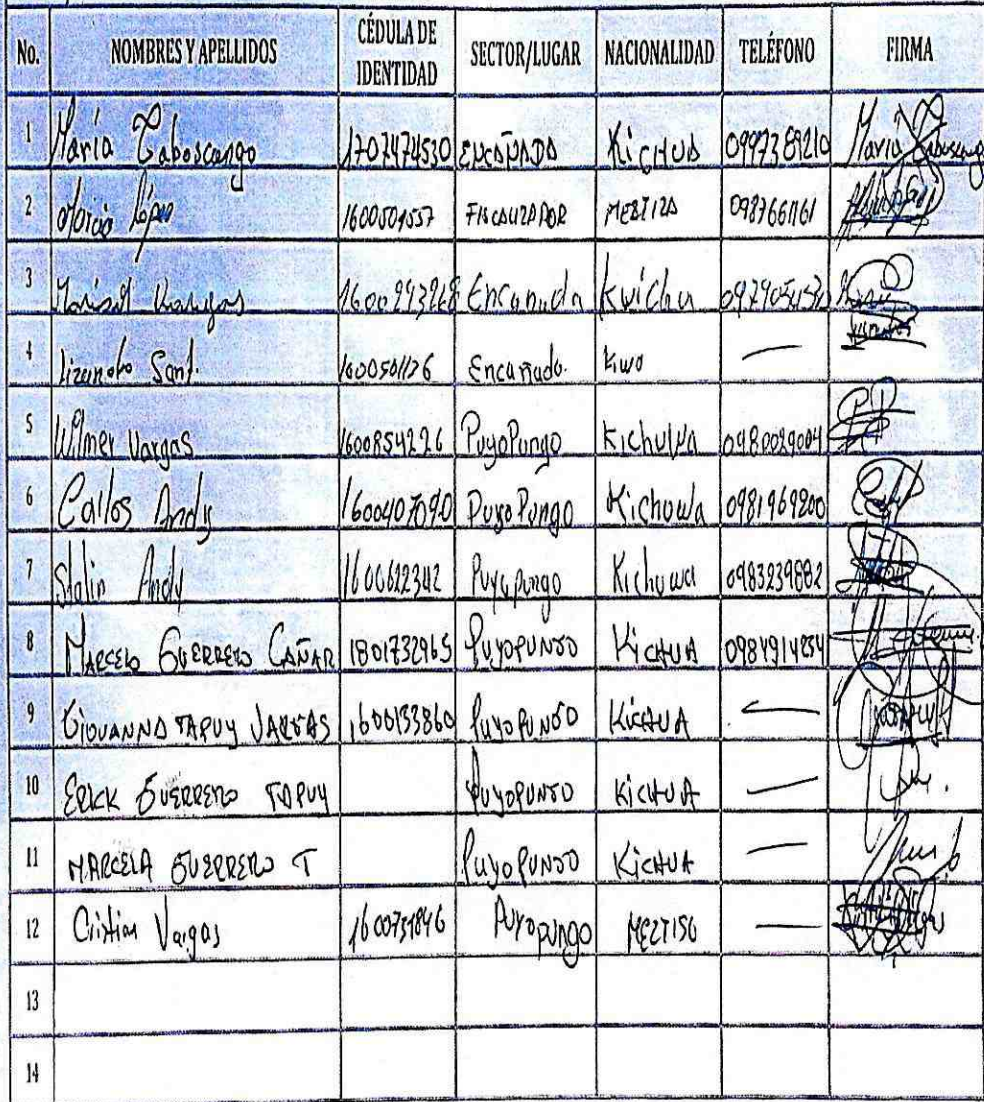 No. NOMBRES Y APELLIDOS CÉDULA DE IDENTIDAD SECTOR/LUGAR NACIONALIDAD TELÉFONO FIRMA
1 María Tabascango 1707474530 ENCAÑADA KICHUA 0997389210 María Tabascango
2 López FISCALIZADOR MESTIZA 0987661161
3 Marisol Vargas Encanada Kwichu
4 Lizandro Sant. Encañado. Kiwo —
5 Wilmer Vargas 1600854226 PuyoPungo Kichuwa 0980029004
6 Carlos Andy 1600407090 Puyo Pungo Kichuwa 0981969200
7 Stalin Andy 1600622342 Puyupungo Kichuwa 0983239882
8 MARCELO GUERRERO CAÑAR 1801732965 PUYOPUNGO KICHUA 0984914834
9 GIOVANNA TAPUY VARGAS 1600433860 PUYOPUNGO KICHUA —
10 ERICK GUERRERO TAPUY PUYOPUNGO KICHUA —
11 MARCELA GUERRERO T PUYOPUNGO KICHUA —
12 Cristian Vargas 1600731846 Puyopungo MEZTISO —
13
14